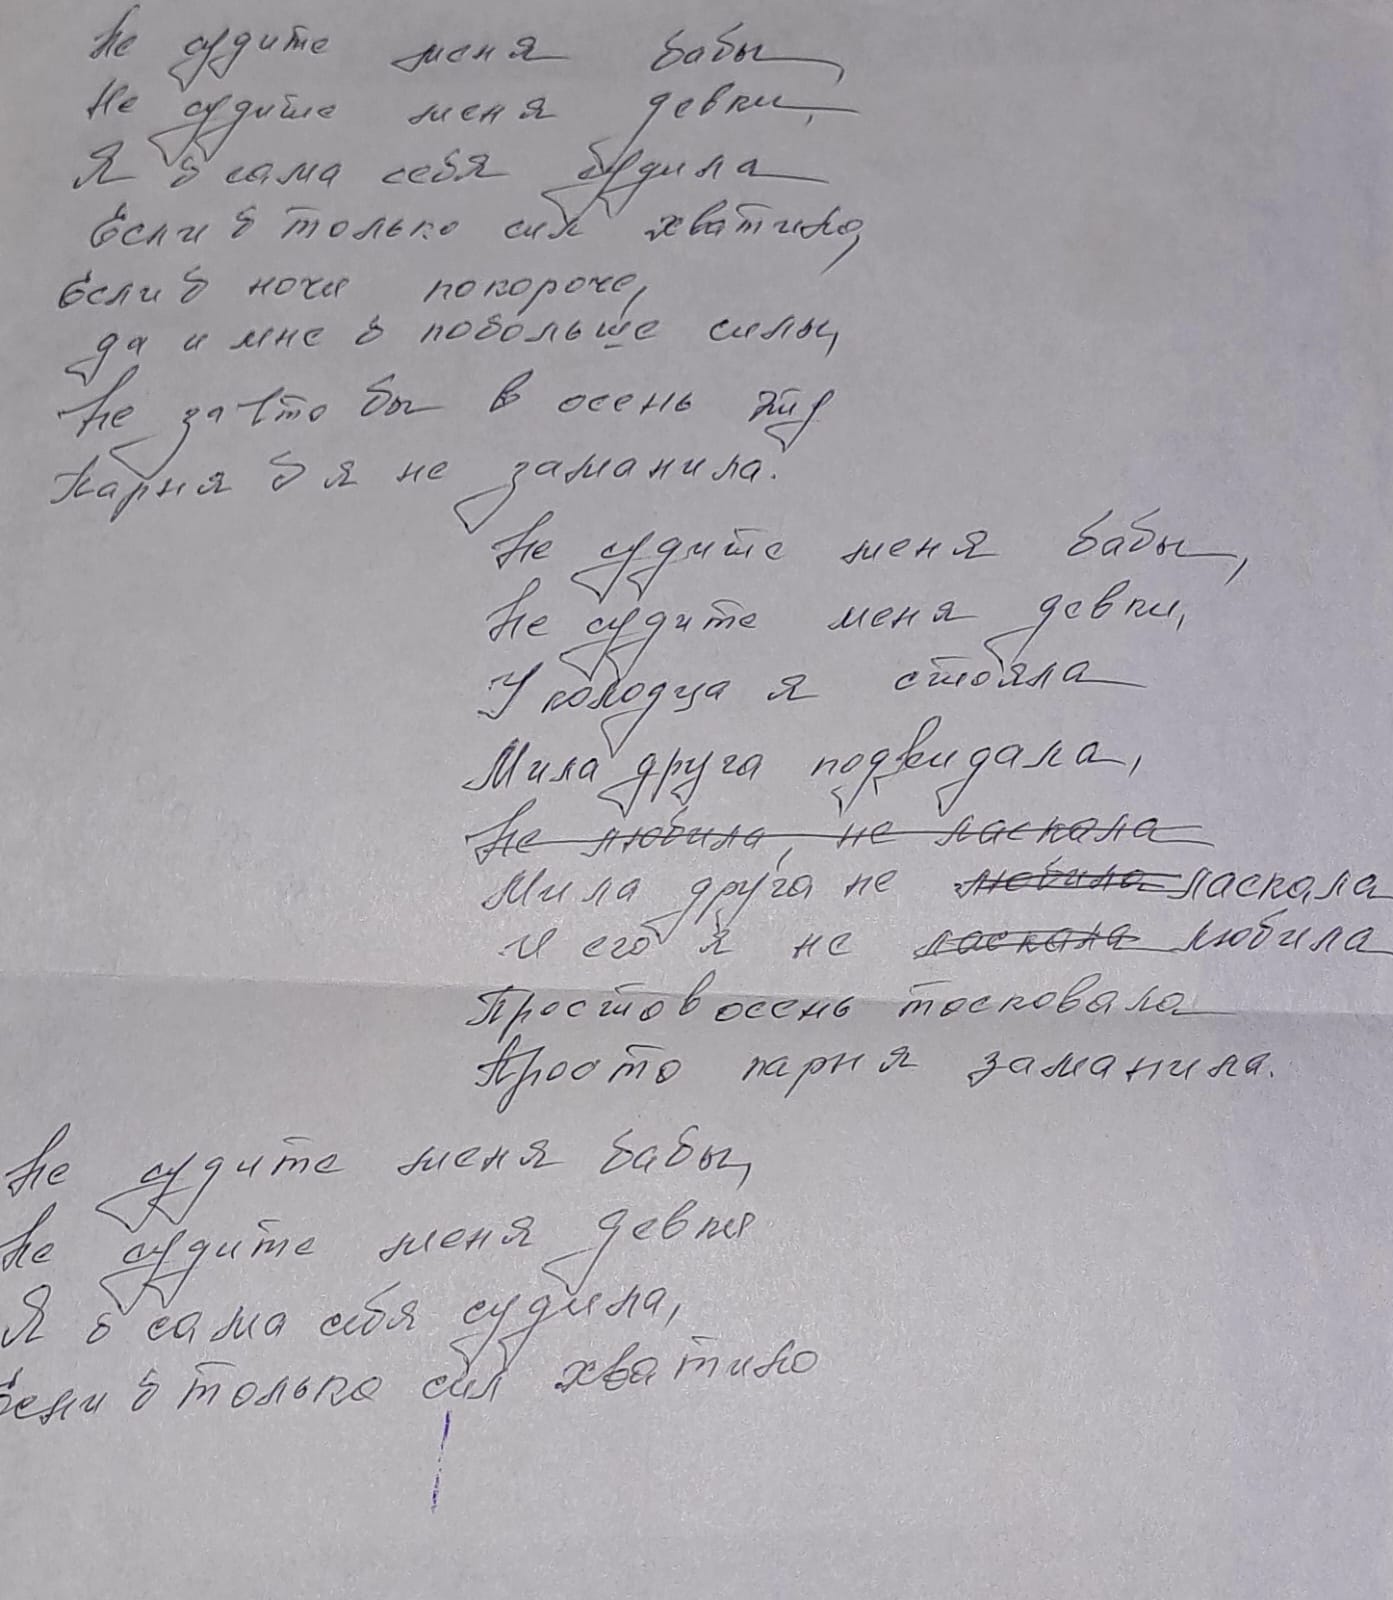 Не судите меня бабы,
Не судите меня девки,
Я б сама себя судила
Если б только сил хватило,
Если б ночи покороче,
да и мне б побольше силы,
Не за что бы в осень эту
Парня б я не заманила.
Не судите меня бабы,
Не судите меня девки,
У колодца я стояла
Мила друга поджидала,
Не любила, не ласкала
Мила друга не любила ласкала
И его я не ласкала любила
Просто в осень тосковала
Просто парня заманила.
Не судите меня бабы,
Не судите меня девки
Я б сама себя судила,
Если б только сил хватило